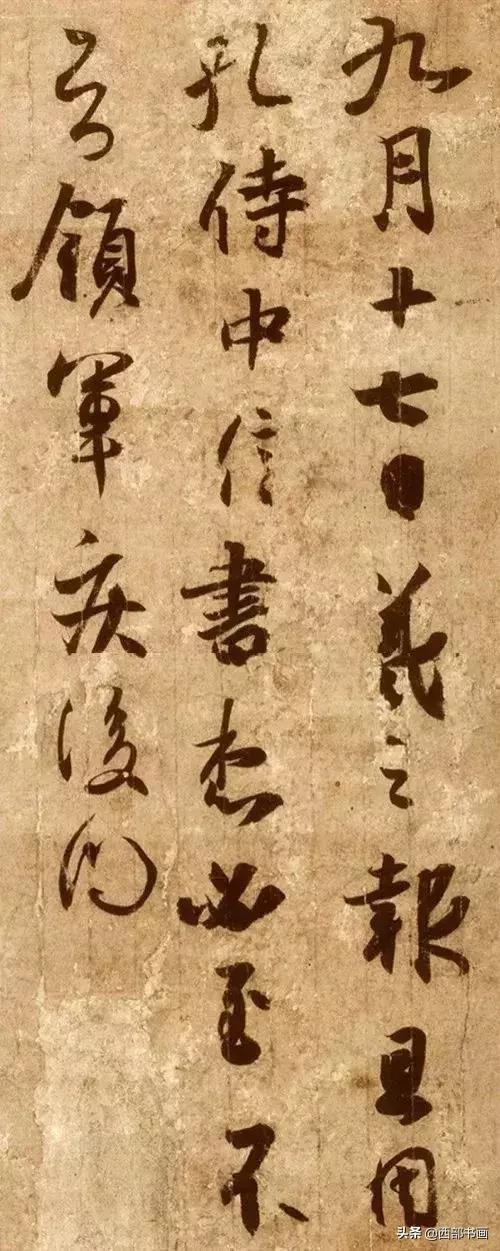 九月十七日羲之報且因
孔侍中信書想必至不
知領軍疾後問
头条 @西部书画